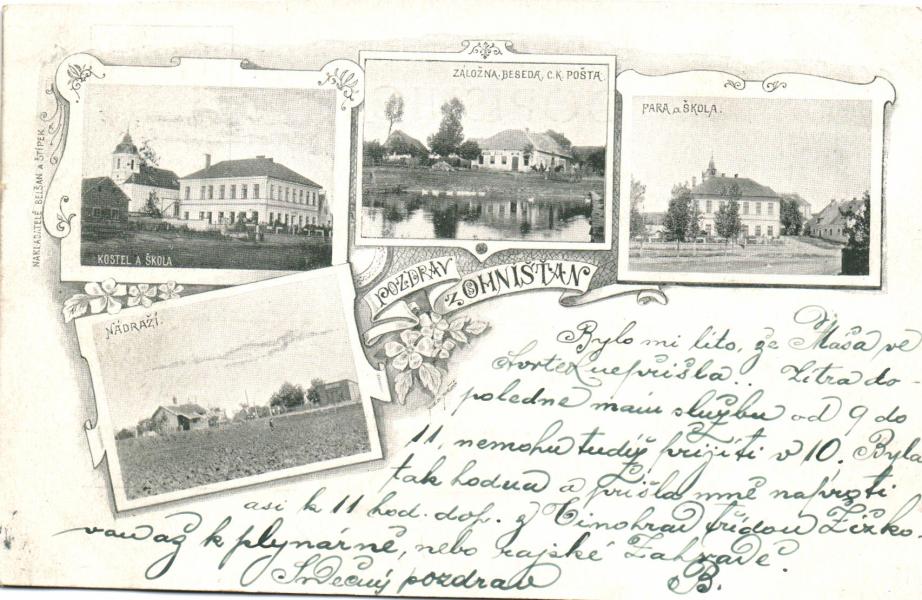 NAKLADATELÉ BELŠAN A ŠTÍPEK
KOSTEL A ŠKOLA
ZÁLOŽNA. BESEDA, C.K. POŠTA.
PARA A ŠKOLA.
NÁDRAŽÍ.
POZDRAV
Z OHNIŠŤAN
Bylo mi líto, že Máša ve
čtvrtek nepřišla.. Zítra do-
poledne mám službu od 9 do
11, nemohu tudíž přijíti v 10. Byla
tak hodna a přišla mně naproti
asi k 11 hod. dop. z Vinohrad třídou Žižko-
vou až k plynárně, nebo rajské Zahradě.
Srdečný pozdrav B.